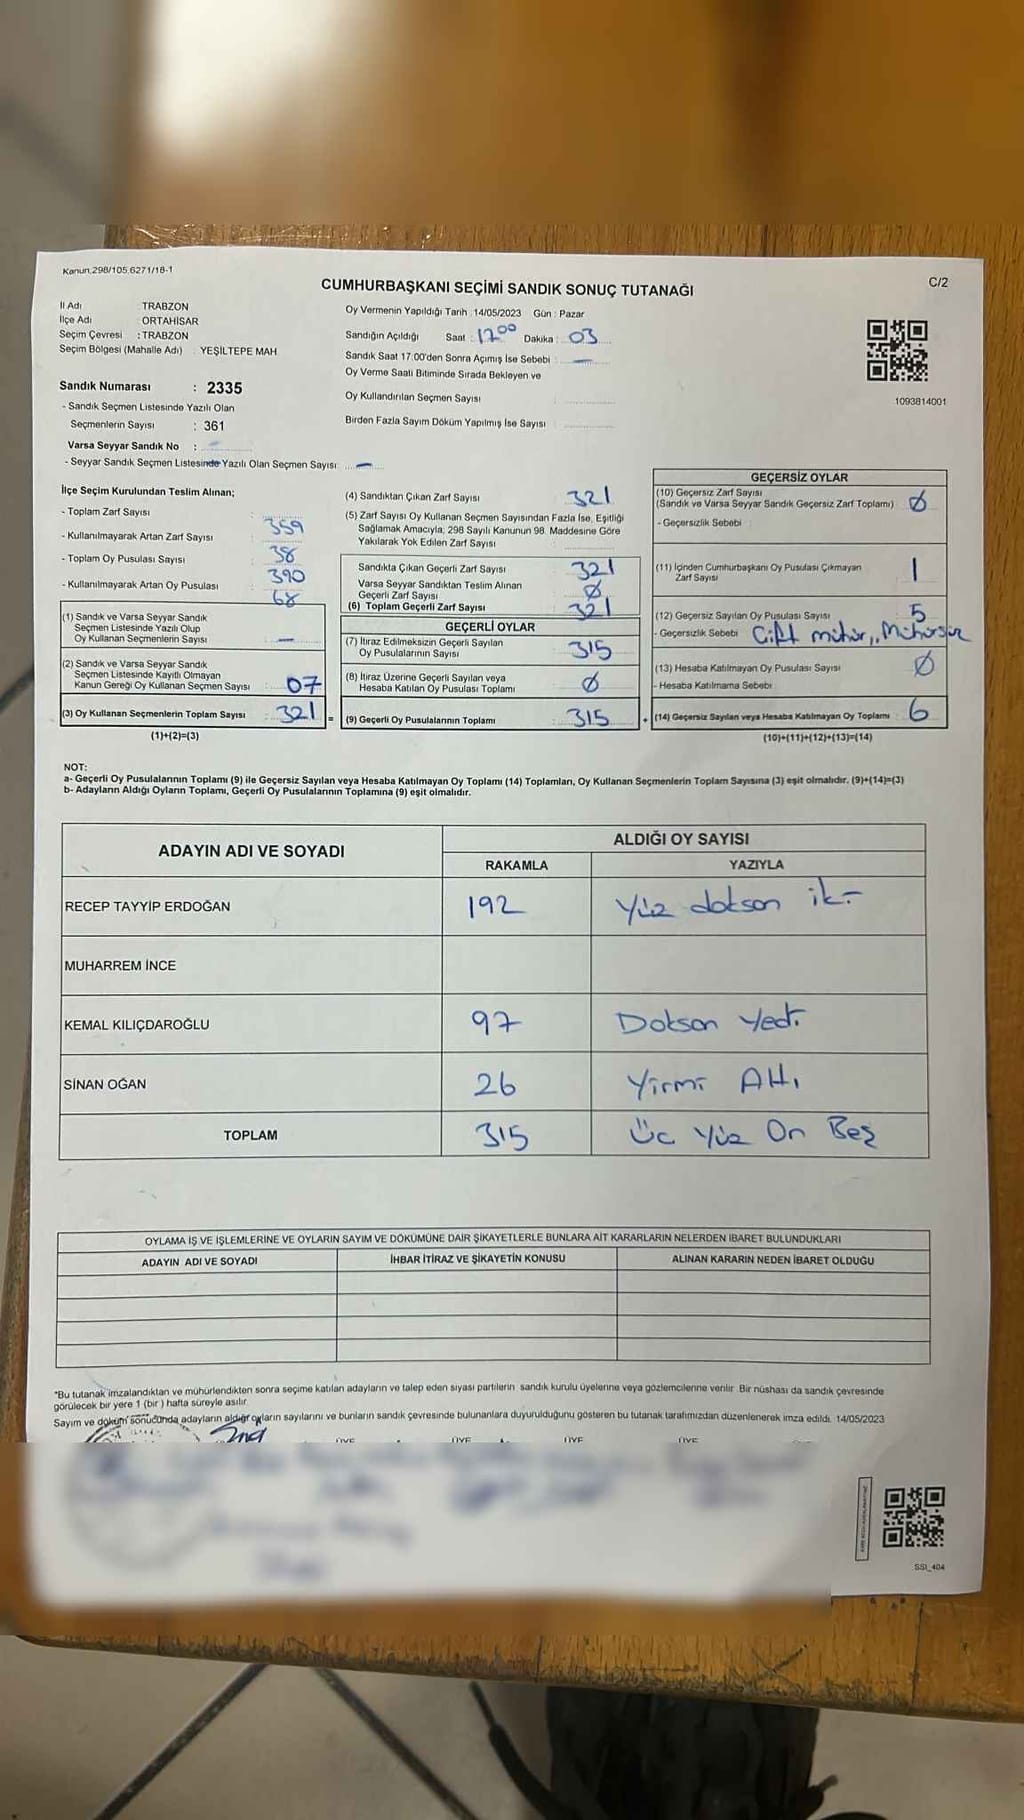 Kanun.298/105,6271/18-1
C/2
CUMHURBAŞKANI SEÇİMİ SANDIK SONUÇ TUTANAĞI
İl Adı TRABZON
İlçe Adı : ORTAHİSAR
Seçim Çevresi : TRABZON
Seçim Bölgesi (Mahalle Adı) : YEŞİLTEPE MAH
Sandık Numarası : 2335
- Sandık Seçmen Listesinde Yazılı Olan
Seçmenlerin Sayısı : 361
Varsa Seyyar Sandık No :
- Seyyar Sandık Seçmen Listesinde Yazılı Olan Seçmen Sayısı: —
Oy Vermenin Yapıldığı Tarih : 14/05/2023 Gün : Pazar
Sandığın Açıldığı Saat : 17 00 Dakika : 03
Sandık Saat 17.00'den Sonra Açımış İse Sebebi : —
Oy Verme Saati Bitiminde Sırada Bekleyen ve
Oy Kullandırılan Seçmen Sayısı
Birden Fazla Sayım Döküm Yapılmış İse Sayısı
1093814001
İlçe Seçim Kurulundan Teslim Alınan;
- Toplam Zarf Sayısı : 359
- Kullanılmayarak Artan Zarf Sayısı : 38
- Toplam Oy Pusulası Sayısı : 390
- Kullanılmayarak Artan Oy Pusulası : 68
(1) Sandık ve Varsa Seyyar Sandık
Seçmen Listesinde Yazılı Olup
Oy Kullanan Seçmenlerin Sayısı : —
(2) Sandık ve Varsa Seyyar Sandık
Seçmen Listesinde Kayıtlı Olmayan
Kanun Gereği Oy Kullanan Seçmen Sayısı : 07
(3) Oy Kullanan Seçmenlerin Toplam Sayısı : 321
(1)+(2)=(3)
=
(4) Sandıktan Çıkan Zarf Sayısı 321
(5) Zarf Sayısı Oy Kullanan Seçmen Sayısından Fazla İse, Eşitliği
Sağlamak Amacıyla; 298 Sayılı Kanunun 98. Maddesine Göre
Yakılarak Yok Edilen Zarf Sayısı
Sandıkta Çıkan Geçerli Zarf Sayısı 321
Varsa Seyyar Sandıktan Teslim Alınan
Geçerli Zarf Sayısı Ø
(6) Toplam Geçerli Zarf Sayısı 321
GEÇERLİ OYLAR
(7) İtiraz Edilmeksizin Geçerli Sayılan
Oy Pusulalarının Sayısı 315
(8) İtiraz Üzerine Geçerli Sayılan veya
Hesaba Katılan Oy Pusulası Toplamı Ø
(9) Geçerli Oy Pusulalarının Toplamı : 315
+
GEÇERSİZ OYLAR
(10) Geçersiz Zarf Sayısı
(Sandık ve Varsa Seyyar Sandık Geçersiz Zarf Toplamı) : Ø
- Geçersizlik Sebebi :
(11) İçinden Cumhurbaşkanı Oy Pusulası Çıkmayan
Zarf Sayısı 1
(12) Geçersiz Sayılan Oy Pusulası Sayısı 5
- Geçersizlik Sebebi Çift mühür,, Mühürsüz
(13) Hesaba Katılmayan Oy Pusulası Sayısı Ø
- Hesaba Katılmama Sebebi
(14) Geçersiz Sayılan veya Hesaba Katılmayan Oy Toplamı : 6
(10)+(11)+(12)+(13)=(14)
NOT:
a- Geçerli Oy Pusulalarının Toplamı (9) ile Geçersiz Sayılan veya Hesaba Katılmayan Oy Toplamı (14) Toplamları, Oy Kullanan Seçmenlerin Toplam Sayısına (3) eşit olmalıdır. (9)+(14)=(3)
b- Adayların Aldığı Oyların Toplamı, Geçerli Oy Pusulalarının Toplamına (9) eşit olmalıdır.
ADAYIN ADI VE SOYADI
ALDIĞI OY SAYISI
RAKAMLA YAZIYLA
RECEP TAYYİP ERDOĞAN 192 Yüz doksan iki
MUHARREM İNCE
KEMAL KILIÇDAROĞLU 97 Doksan Yedi
SİNAN OĞAN 26 Yirmi Altı
TOPLAM 315 Üc Yüz On Beş
OYLAMA İŞ VE İŞLEMLERİNE VE OYLARIN SAYIM VE DÖKÜMÜNE DAİR ŞİKAYETLERLE BUNLARA AİT KARARLARIN NELERDEN İBARET BULUNDUKLARI
ADAYIN ADI VE SOYADI İHBAR İTİRAZ VE ŞİKAYETİN KONUSU ALINAN KARARIN NEDEN İBARET OLDUĞU
*Bu tutanak imzalandıktan ve mühürlendikten sonra seçime katılan adayların ve talep eden siyasi partilerin sandık kurulu üyelerine veya gözlemcilerine verilir. Bir nüshası da sandık çevresinde
görülecek bir yere 1 (bir ) hafta süreyle asılır.
Sayım ve döküm sonucunda adayların aldığı oyların sayılarını ve bunların sandık çevresinde bulunanlara duyurulduğunu gösteren bu tutanak tarafımızdan düzenlenerek imza edildi. 14/05/2023
ÜYE ÜYE ÜYE ÜYE
SSI_404